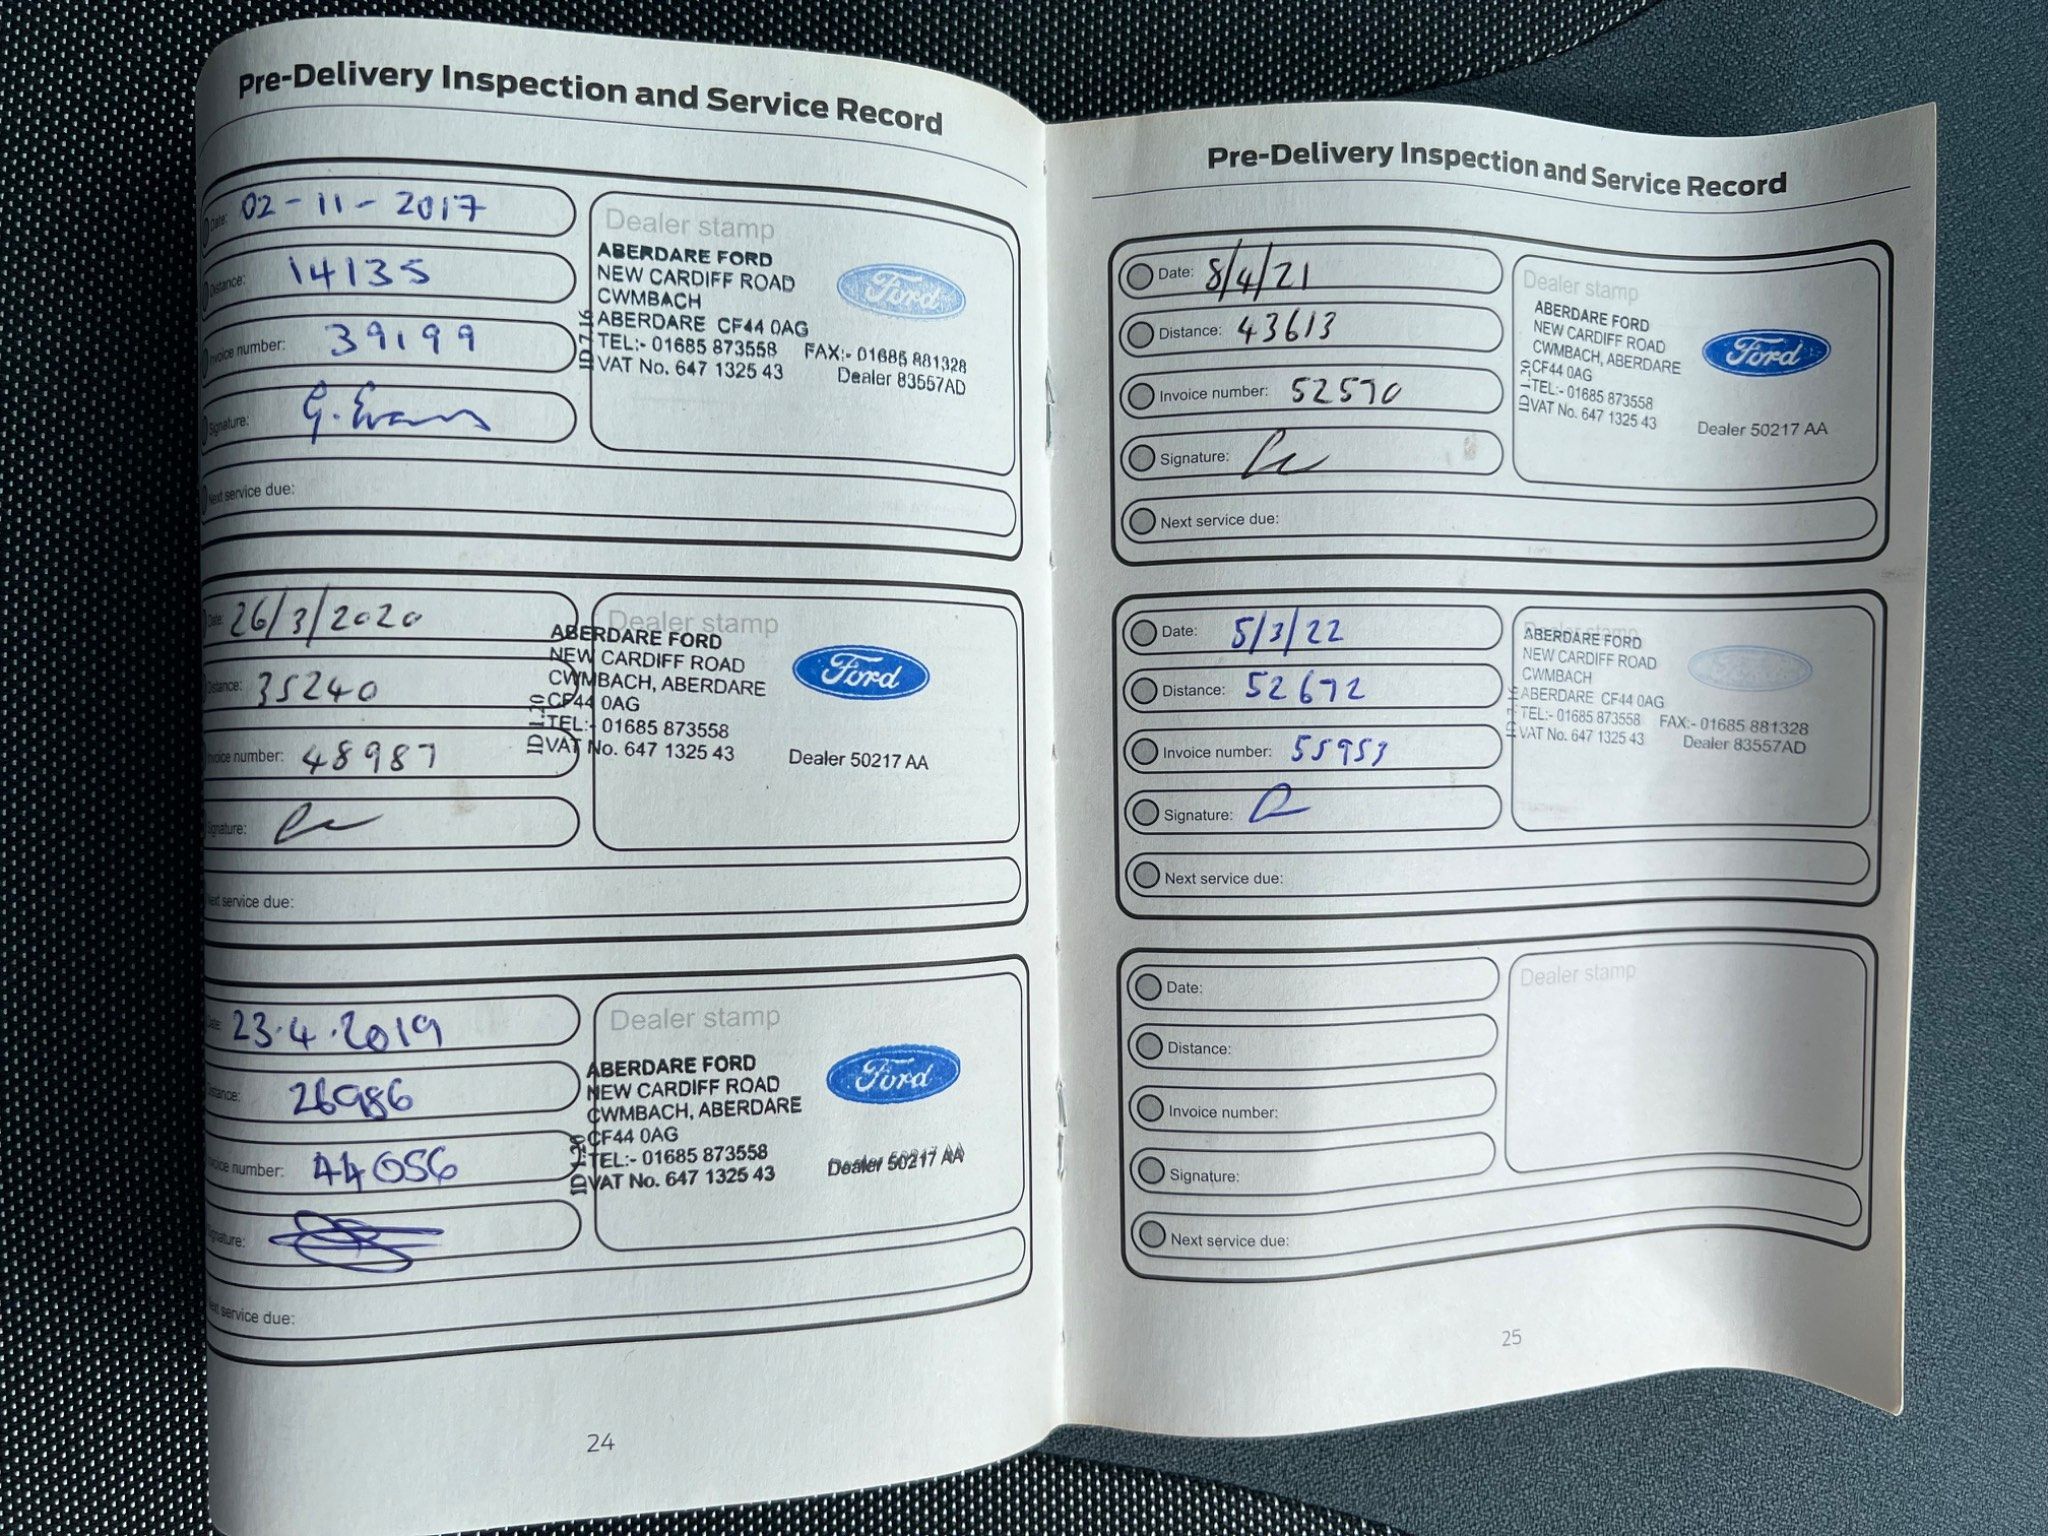 Pre-Delivery Inspection and Service Record
Date: 02-11-2017
Distance: 14135
Invoice number: 39199
Signature: G. Evans
Next service due:
Dealer stamp
ABERDARE FORD
NEW CARDIFF ROAD
CWMBACH
ABERDARE CF44 0AG
TEL:- 01685 873558 FAX:- 01685 881328
VAT No. 647 1325 43 Dealer 83557AD
ID 7.16
Ford
Date: 26/3/2020
Distance: 35240
Invoice number: 48987
Signature:
Next service due:
Dealer stamp
ABERDARE FORD
NEW CARDIFF ROAD
CWMBACH, ABERDARE
CF44 0AG
TEL:- 01685 873558
VAT No. 647 1325 43
Dealer 50217 AA
ID 1.20
Ford
Date: 23.4.2019
Distance: 26986
Invoice number: 44056
Signature:
Next service due:
Dealer stamp
ABERDARE FORD
NEW CARDIFF ROAD
CWMBACH, ABERDARE
CF44 0AG
TEL:- 01685 873558
VAT No. 647 1325 43
Dealer 50217 AA
ID 1.20
Ford
24
Pre-Delivery Inspection and Service Record
Date: 8/4/21
Distance: 43613
Invoice number: 52570
Signature:
Next service due:
Dealer stamp
ABERDARE FORD
NEW CARDIFF ROAD
CWMBACH, ABERDARE
CF44 0AG
TEL:- 01685 873558
VAT No. 647 1325 43
Dealer 50217 AA
Ford
Date: 5/3/22
Distance: 52672
Invoice number: 55953
Signature:
Next service due:
Dealer stamp
ABERDARE FORD
NEW CARDIFF ROAD
CWMBACH
ABERDARE CF44 0AG
TEL:- 01685 873558 FAX:- 01685 881328
VAT No. 647 1325 43 Dealer 83557AD
Ford
Date:
Distance:
Invoice number:
Signature:
Next service due:
Dealer stamp
25